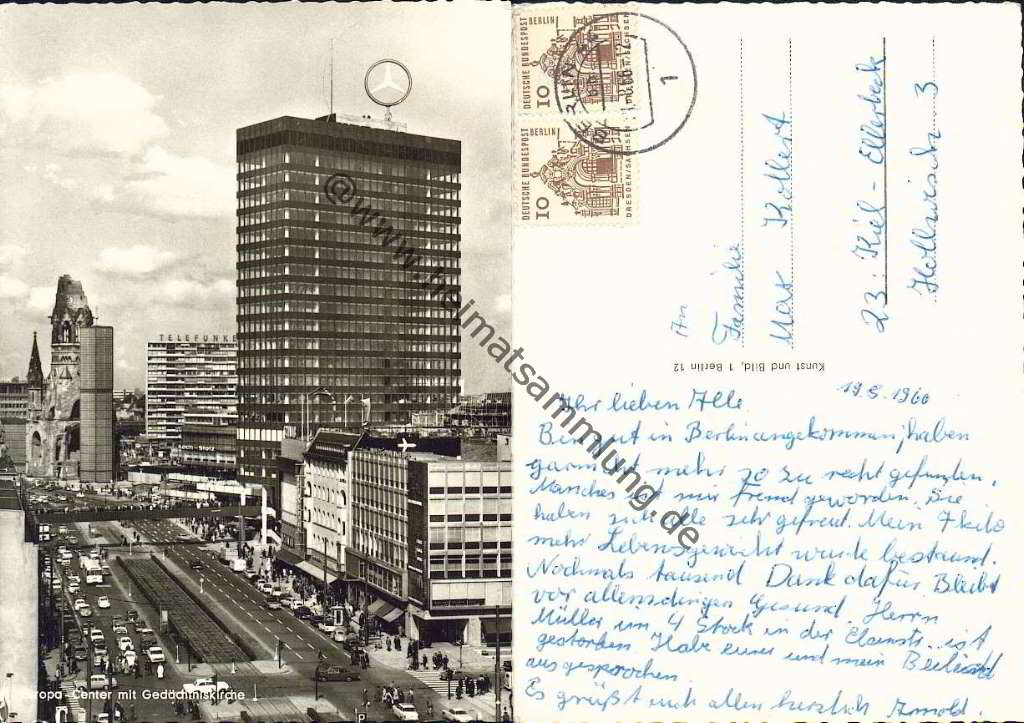 TELEFUNKE
Europa-Center mit Gedächtniskirche
@www.heimatsammlung.de
DEUTSCHE BUNDESPOST BERLIN
10
DRESDEN/SACHSEN
DEUTSCHE BUNDESPOST BERLIN
10
DRESDEN/SACHSEN
1
An
Familie
Max Kollert
23. Kiel-Ellerbeck
Hollwisch 3
Kunst und Bild, 1 Berlin 12
19.8.1966
Ihr lieben Alle.
Bin gut in Berlin angekommen, haben
gar nicht mehr so zu recht gefunden,
Manches ist mir fremd geworden. Sie
haben sich alle sehr gefreut. Mein 7 kilo
mehr Lebensgewicht wurde bestaunt.
Nochmals tausend Dank dafür. Bleibt
vor allem Gesund. Herrn
Müller im 4 Stock in der ist
gestorben. Habe und mein Beileid
ausgesprochen.
Es grüßt euch allen herzlich Arnold.